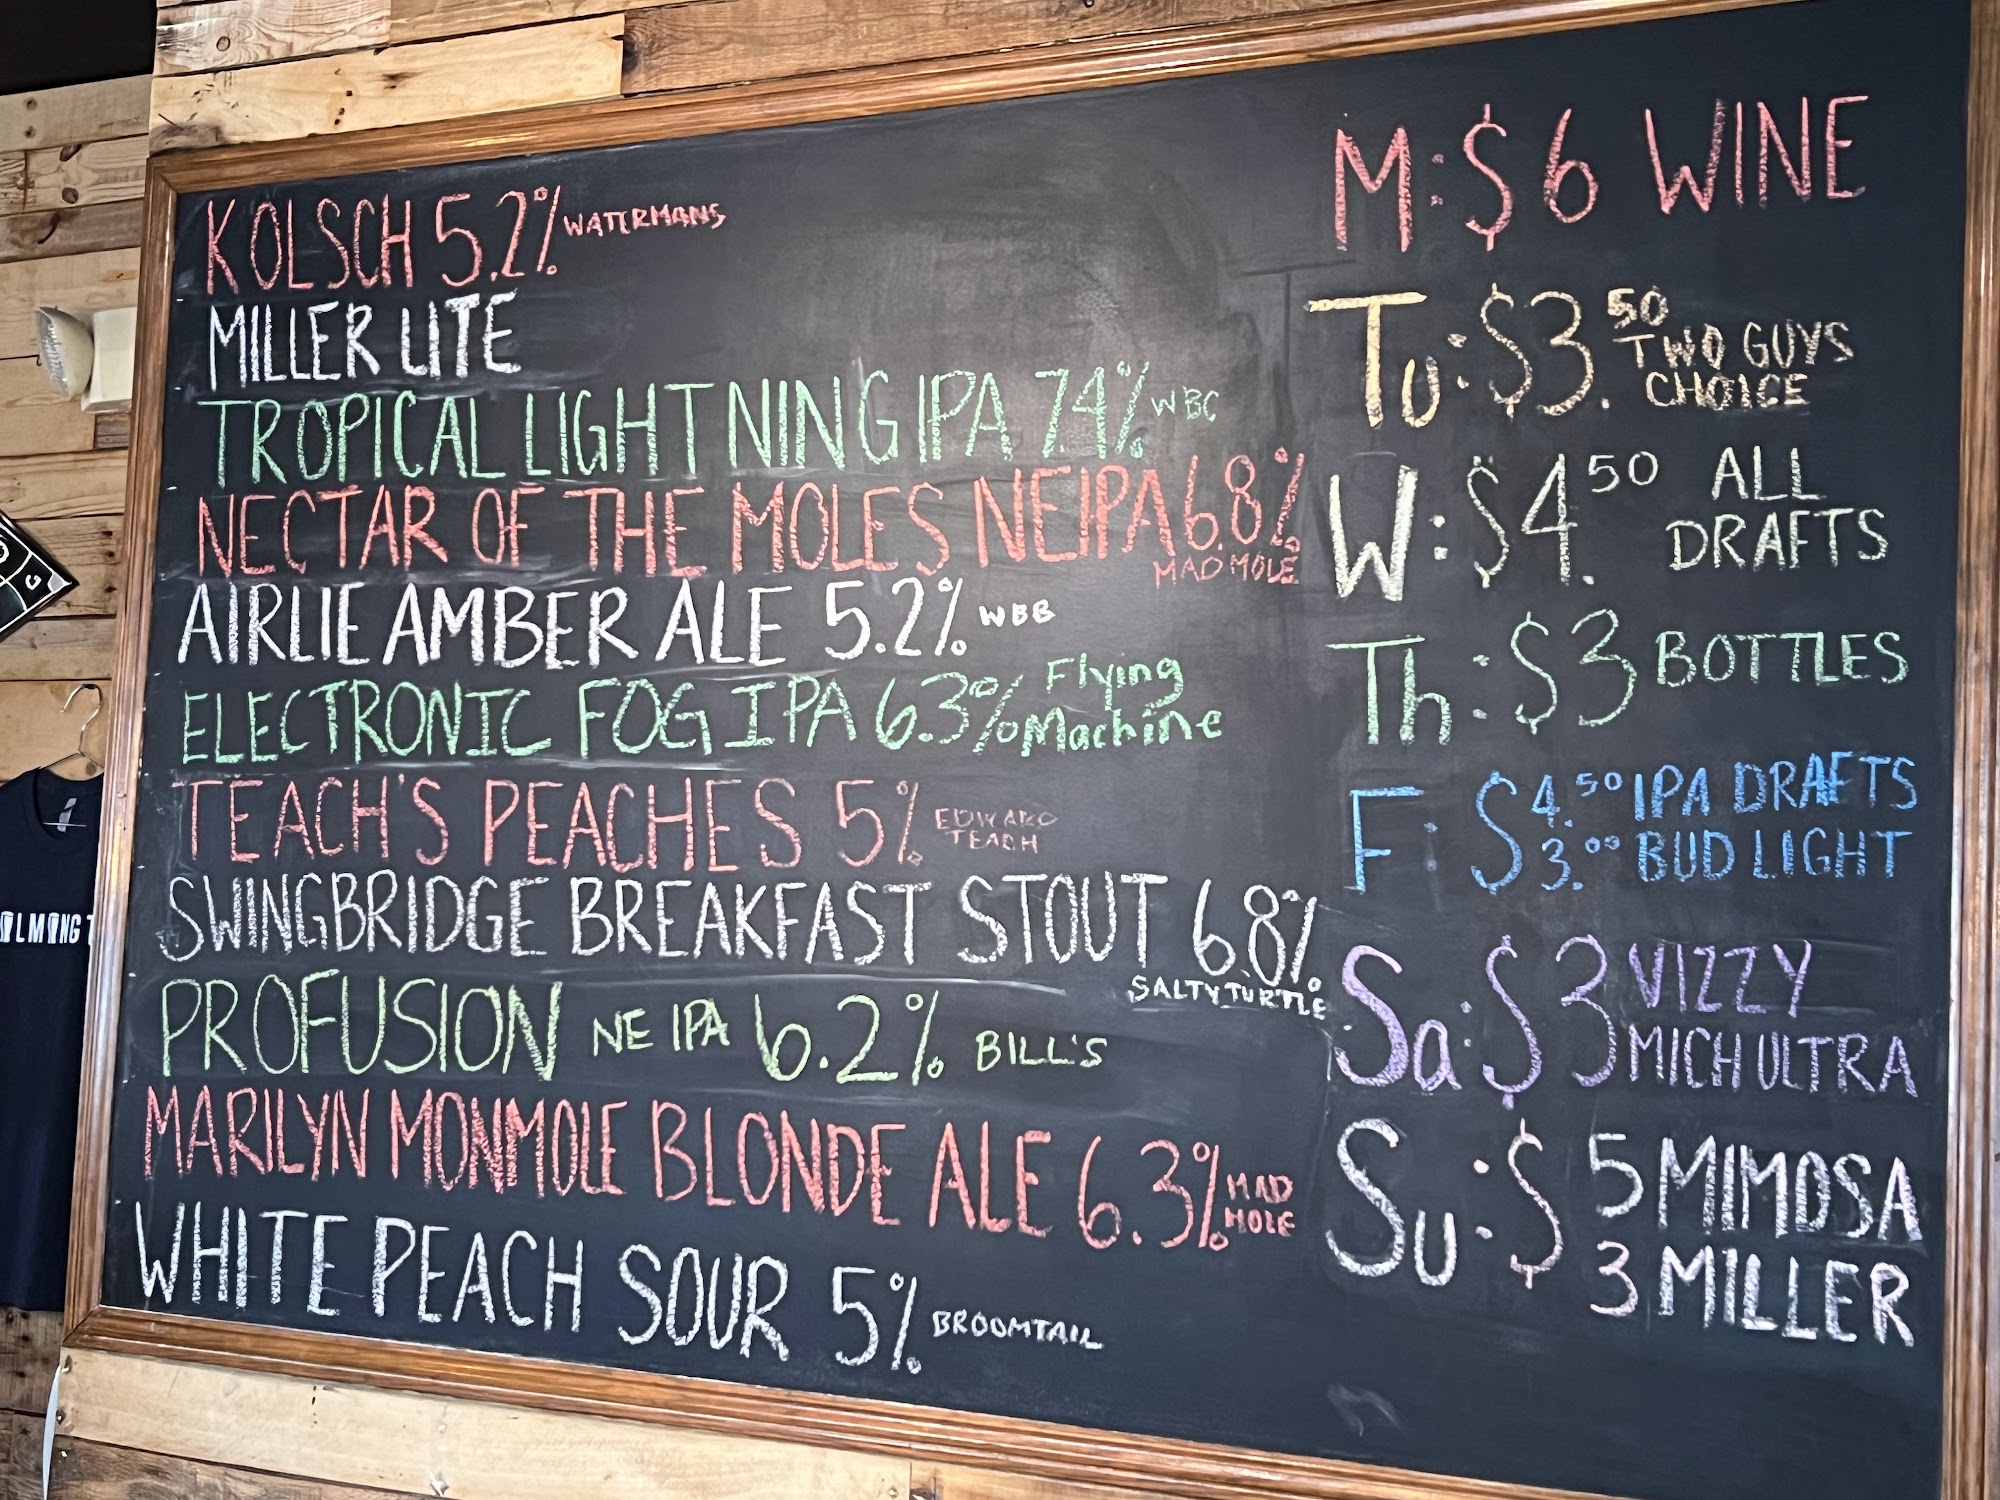 KOLSCH 5.2% WATERMANS
MILLER LITE
TROPICAL LIGHTNING IPA 7.4% WBC
NECTAR OF THE MOLES NEIPA 6.8%
MAD MOLE
AIRLIE AMBER ALE 5.2% WBB
ELECTRONIC FOG IPA 6.3% Flying
Machine
TEACH'S PEACHES 5% EDWARD
TEACH
SWINGBRIDGE BREAKFAST STOUT 6.8%
SALTY TURTLE
PROFUSION NE IPA 6.2% BILL'S
MARILYN MONMOLE BLONDE ALE 6.3% MAD
MOLE
WHITE PEACH SOUR 5% BROOMTAIL
M: $6 WINE
Tu: $3.50 TWO GUYS
CHOICE
W: $4.50 ALL
DRAFTS
Th: $3 BOTTLES
F: $4.50 IPA DRAFTS
3.00 BUD LIGHT
Sa: $3 VIZZY
MICH ULTRA
Su: $5 MIMOSA
3 MILLER